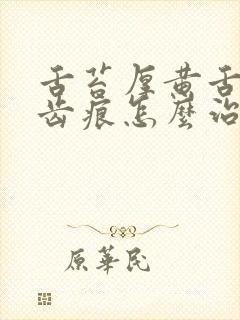 舌苔厚黄舌
齿痕怎麼治
原華民